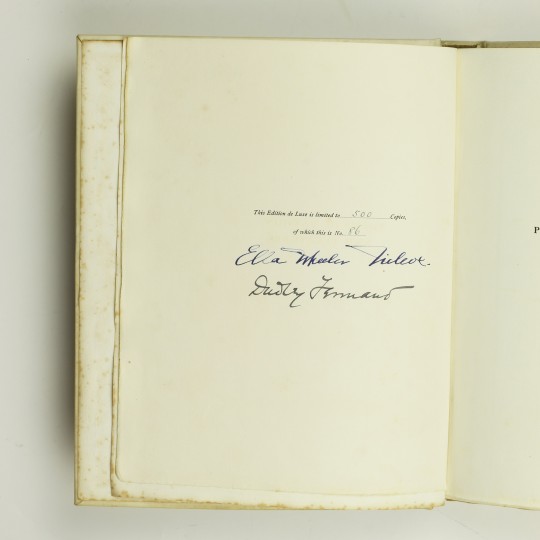 This Edition de Luxe is limited to 500 Copies,
of which this is No. 86
Ella Wheeler Wilcox.
Dudley Tennant
P